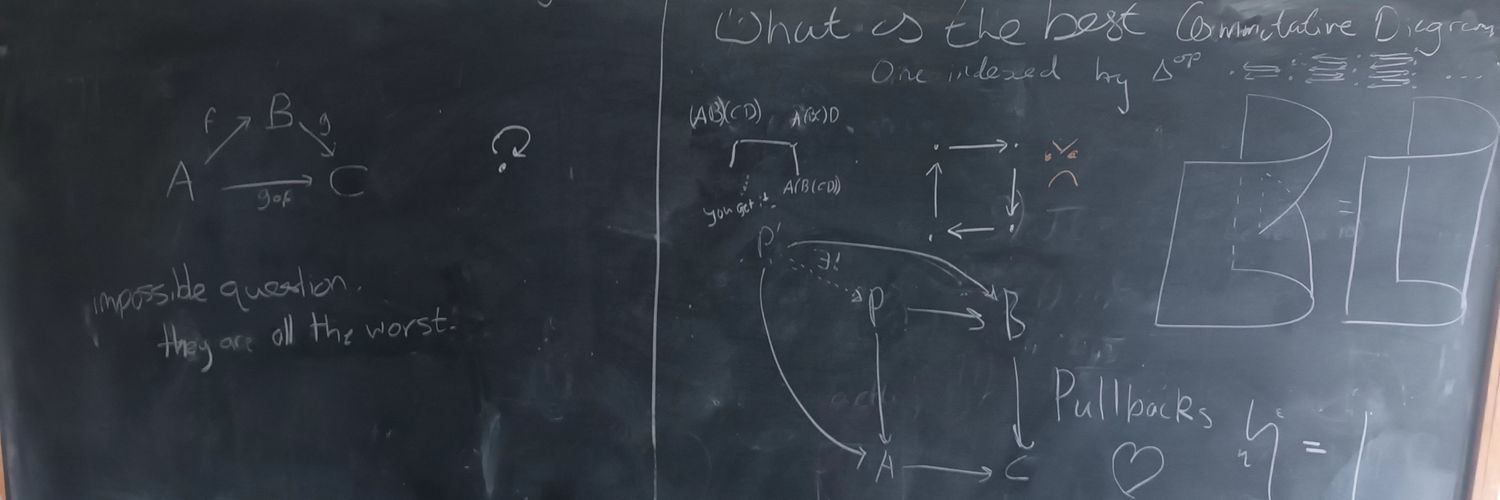 What is the best Commutative Diagram
One indexed by Δᵒᵖ
B
f g
A C
g∘f
impossible question.
they are all the worst.
(AB)(CD) A(BC)D
A(B(CD))
you get it.
P'
∃!
P B
A C
Pullbacks
♡
ε
η
=
=